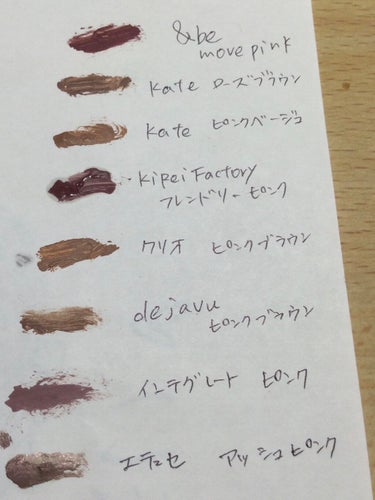 &be
move pink
kate ローズブラウン
kate ピンクベージュ
kipei Factory
フレンドリーピンク
クリオ ピンクブラウン
dejavu
ピンクブラウン
インテグレート ピンク
エテュセ アッシュピンク